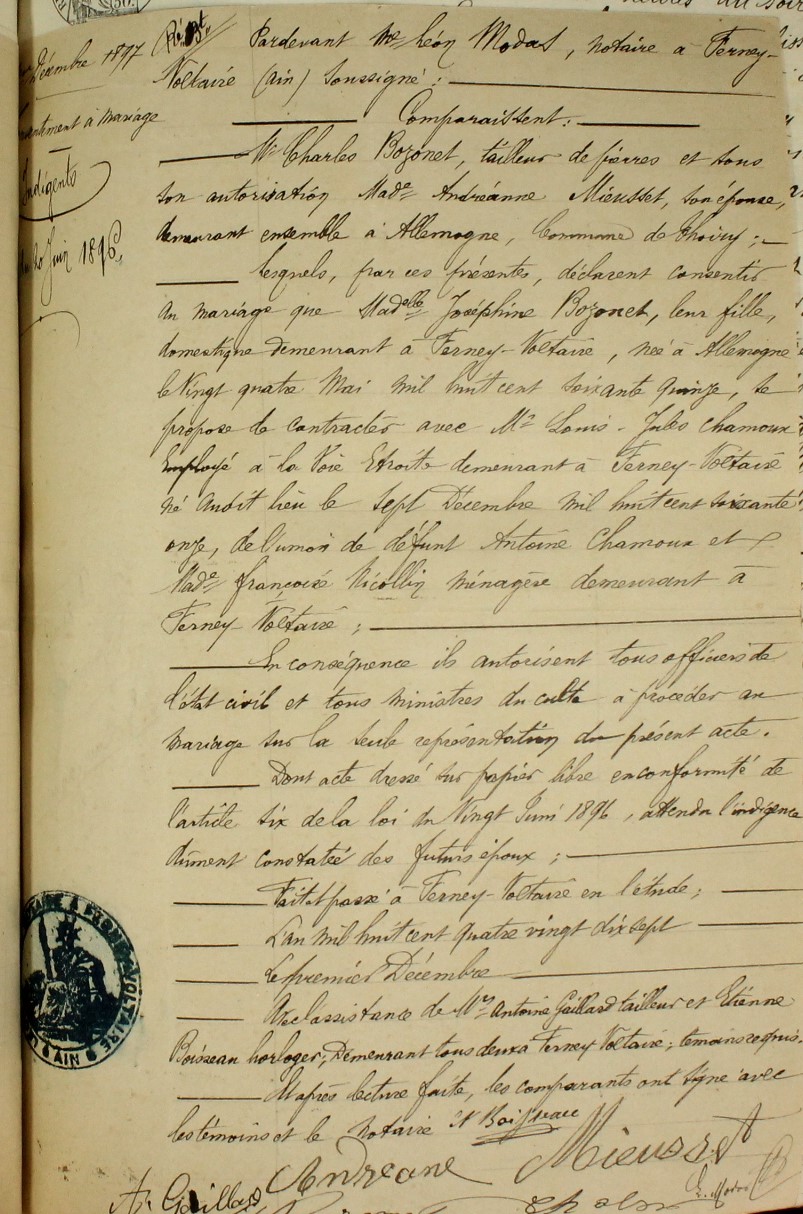 Décembre 1897
à Mariage
Indigents
Juin 1896
Pardevant Me Léon Modas, notaire à Ferney-
Voltaire (Ain) soussigné :
Comparaissent :
Mr Charles Bozonet, tailleur de pierres et sous
son autorisation Made Andréanne Mieusset, son épouse,
demeurant ensemble à Allemogne, Commune de Thoiry ;
Lesquels, par ces présentes, déclarent consentir
au mariage que Madelle Joséphine Bozonet, leur fille,
domestique demeurant à Ferney-Voltaire, née à Allemogne
le Vingt quatre Mai mil huit cent soixante quinze, se
propose de contracter avec Mr Louis-Jules Chamoux
Employé à la Voie Etroite demeurant à Ferney-Voltaire
né audit lieu le sept Décembre mil huit cent soixante
onze, de l'union de défunt Antoine Chamoux et
Made françoise Nicollin ménagère demeurant à
Ferney-Voltaire ;
En conséquence ils autorisent tous officiers de
l'état civil et tous ministres du culte à procéder au
mariage sur la seule représentation du présent acte.
Dont acte dressé sur papier libre en conformité de
l'article six de la loi du Vingt Juin 1896, attendu l'indigence
dûment constatée des futurs époux ;
Fait et passé à Ferney-Voltaire en l'étude ;
L'an mil huit cent quatre vingt dix sept
Le premier Décembre
Avec l'assistance de Mrs Antoine Gaillard tailleur et Etienne
Boisseau horloger, Demeurant tous deux à Ferney Voltaire, témoins requis.
Et après lecture faite, les comparants ont signé avec
les témoins et le notaire
Andreane Mieusset
A. Gaillard